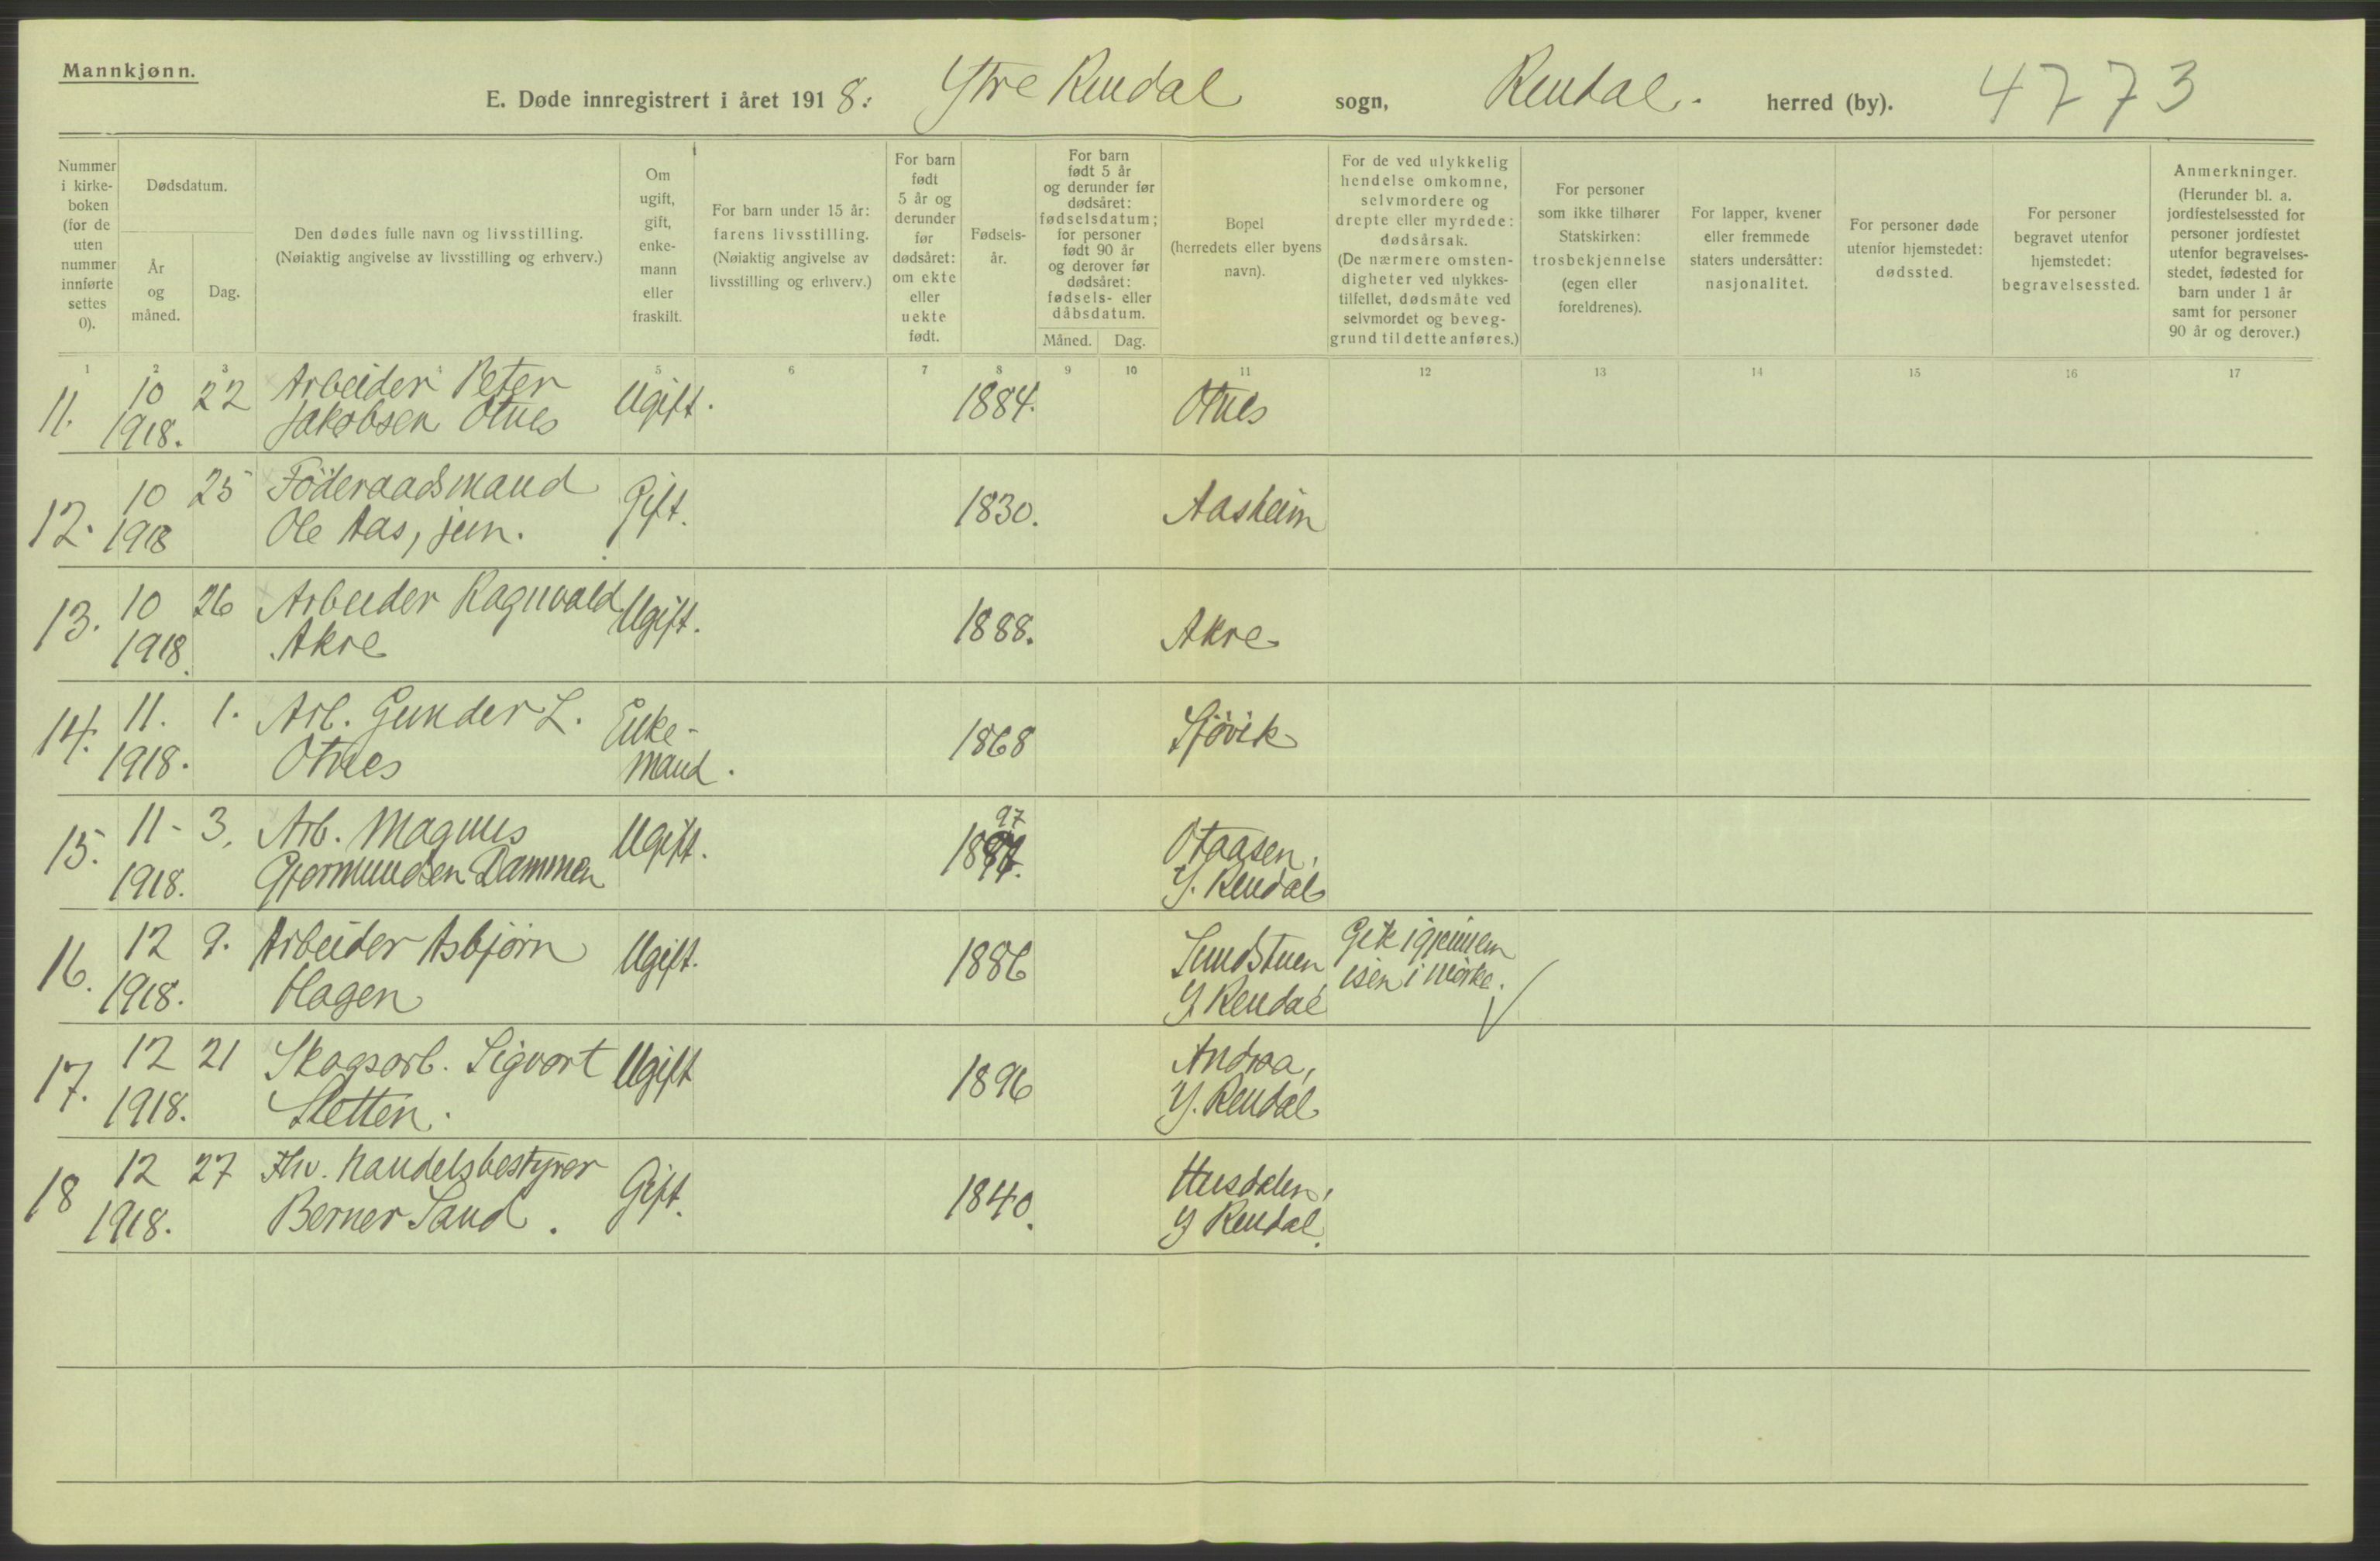 Mannkjønn.
E. Døde innregistrert i året 1918: Ytre Rendal sogn, Rendal. herred (by). 4773
Nummer
i kirke-
boken
(for de
uten
nummer
innførte
settes
0).
Dødsdatum.
År
og
måned.
Dag.
Den dødes fulle navn og livsstilling.
(Nøiaktig angivelse av livsstilling og erhverv.)
Om
ugift,
gift,
enke-
mann
eller
fraskilt.
For barn under 15 år:
farens livsstilling.
(Nøiaktig angivelse av
livsstilling og erhverv.)
For barn
født
5 år og
derunder
før
dødsåret:
om ekte
eller
uekte
født.
Fødsels-
år.
For barn
født 5 år
og derunder før
dødsåret:
fødselsdatum;
for personer
født 90 år
og derover før
dødsåret:
fødsels- eller
dåbsdatum.
Måned. Dag.
Bopel
(herredets eller byens
navn).
For de ved ulykkelig
hendelse omkomne,
selvmordere og
drepte eller myrdede:
dødsårsak.
(De nærmere omsten-
digheter ved ulykkes-
tilfellet, dødsmåte ved
selvmordet og beveg-
grund til dette anføres.)
For personer
som ikke tilhører
Statskirken:
trosbekjennelse
(egen eller
foreldrenes).
For lapper, kvener
eller fremmede
staters undersåtter:
nasjonalitet.
For personer døde
utenfor hjemstedet:
dødssted.
For personer
begravet utenfor
hjemstedet:
begravelsessted.
Anmerkninger.
(Herunder bl. a.
jordfestelsessted for
personer jordfestet
utenfor begravelses-
stedet, fødested for
barn under 1 år
samt for personer
90 år og derover.)
1 2 3 4 5 6 7 8 9 10 11 12 13 14 15 16 17
11. 10 22 Arbeider Peter Ugift. 1884. Otnes
1918. Jakobsen Otnes
12. 10 25 Föderaadsmand Gift. 1830. Aasheim
1918 Ole Aas, jun.
13. 10 26 Arbeider Ragnvald Ugift. 1888. Akre
1918. Akre
14. 11. 1. Arb. Gunder L. Enke- 1868 Sjøvik
1918. Otnes mand.
15. 11- 3, Arb. Magnus Ugift. 1897 Otaasen,
1918. Gjormundsen Dammen Y. Rendal
16. 12 9. Arbeider Asbjörn Ugift. 1886 Sundstuen Gik igjennem
1918. Hagen Y Rendal isen i mörke.
17. 12 21 Skogsarb. Sigvart Ugift 1896 Andraa,
1918. Sletten. Y. Rendal
18 12 27 Fhv. handelsbestyrer Gift. 1840. Husdalen,
1918. Berner Sand. Y Rendal.